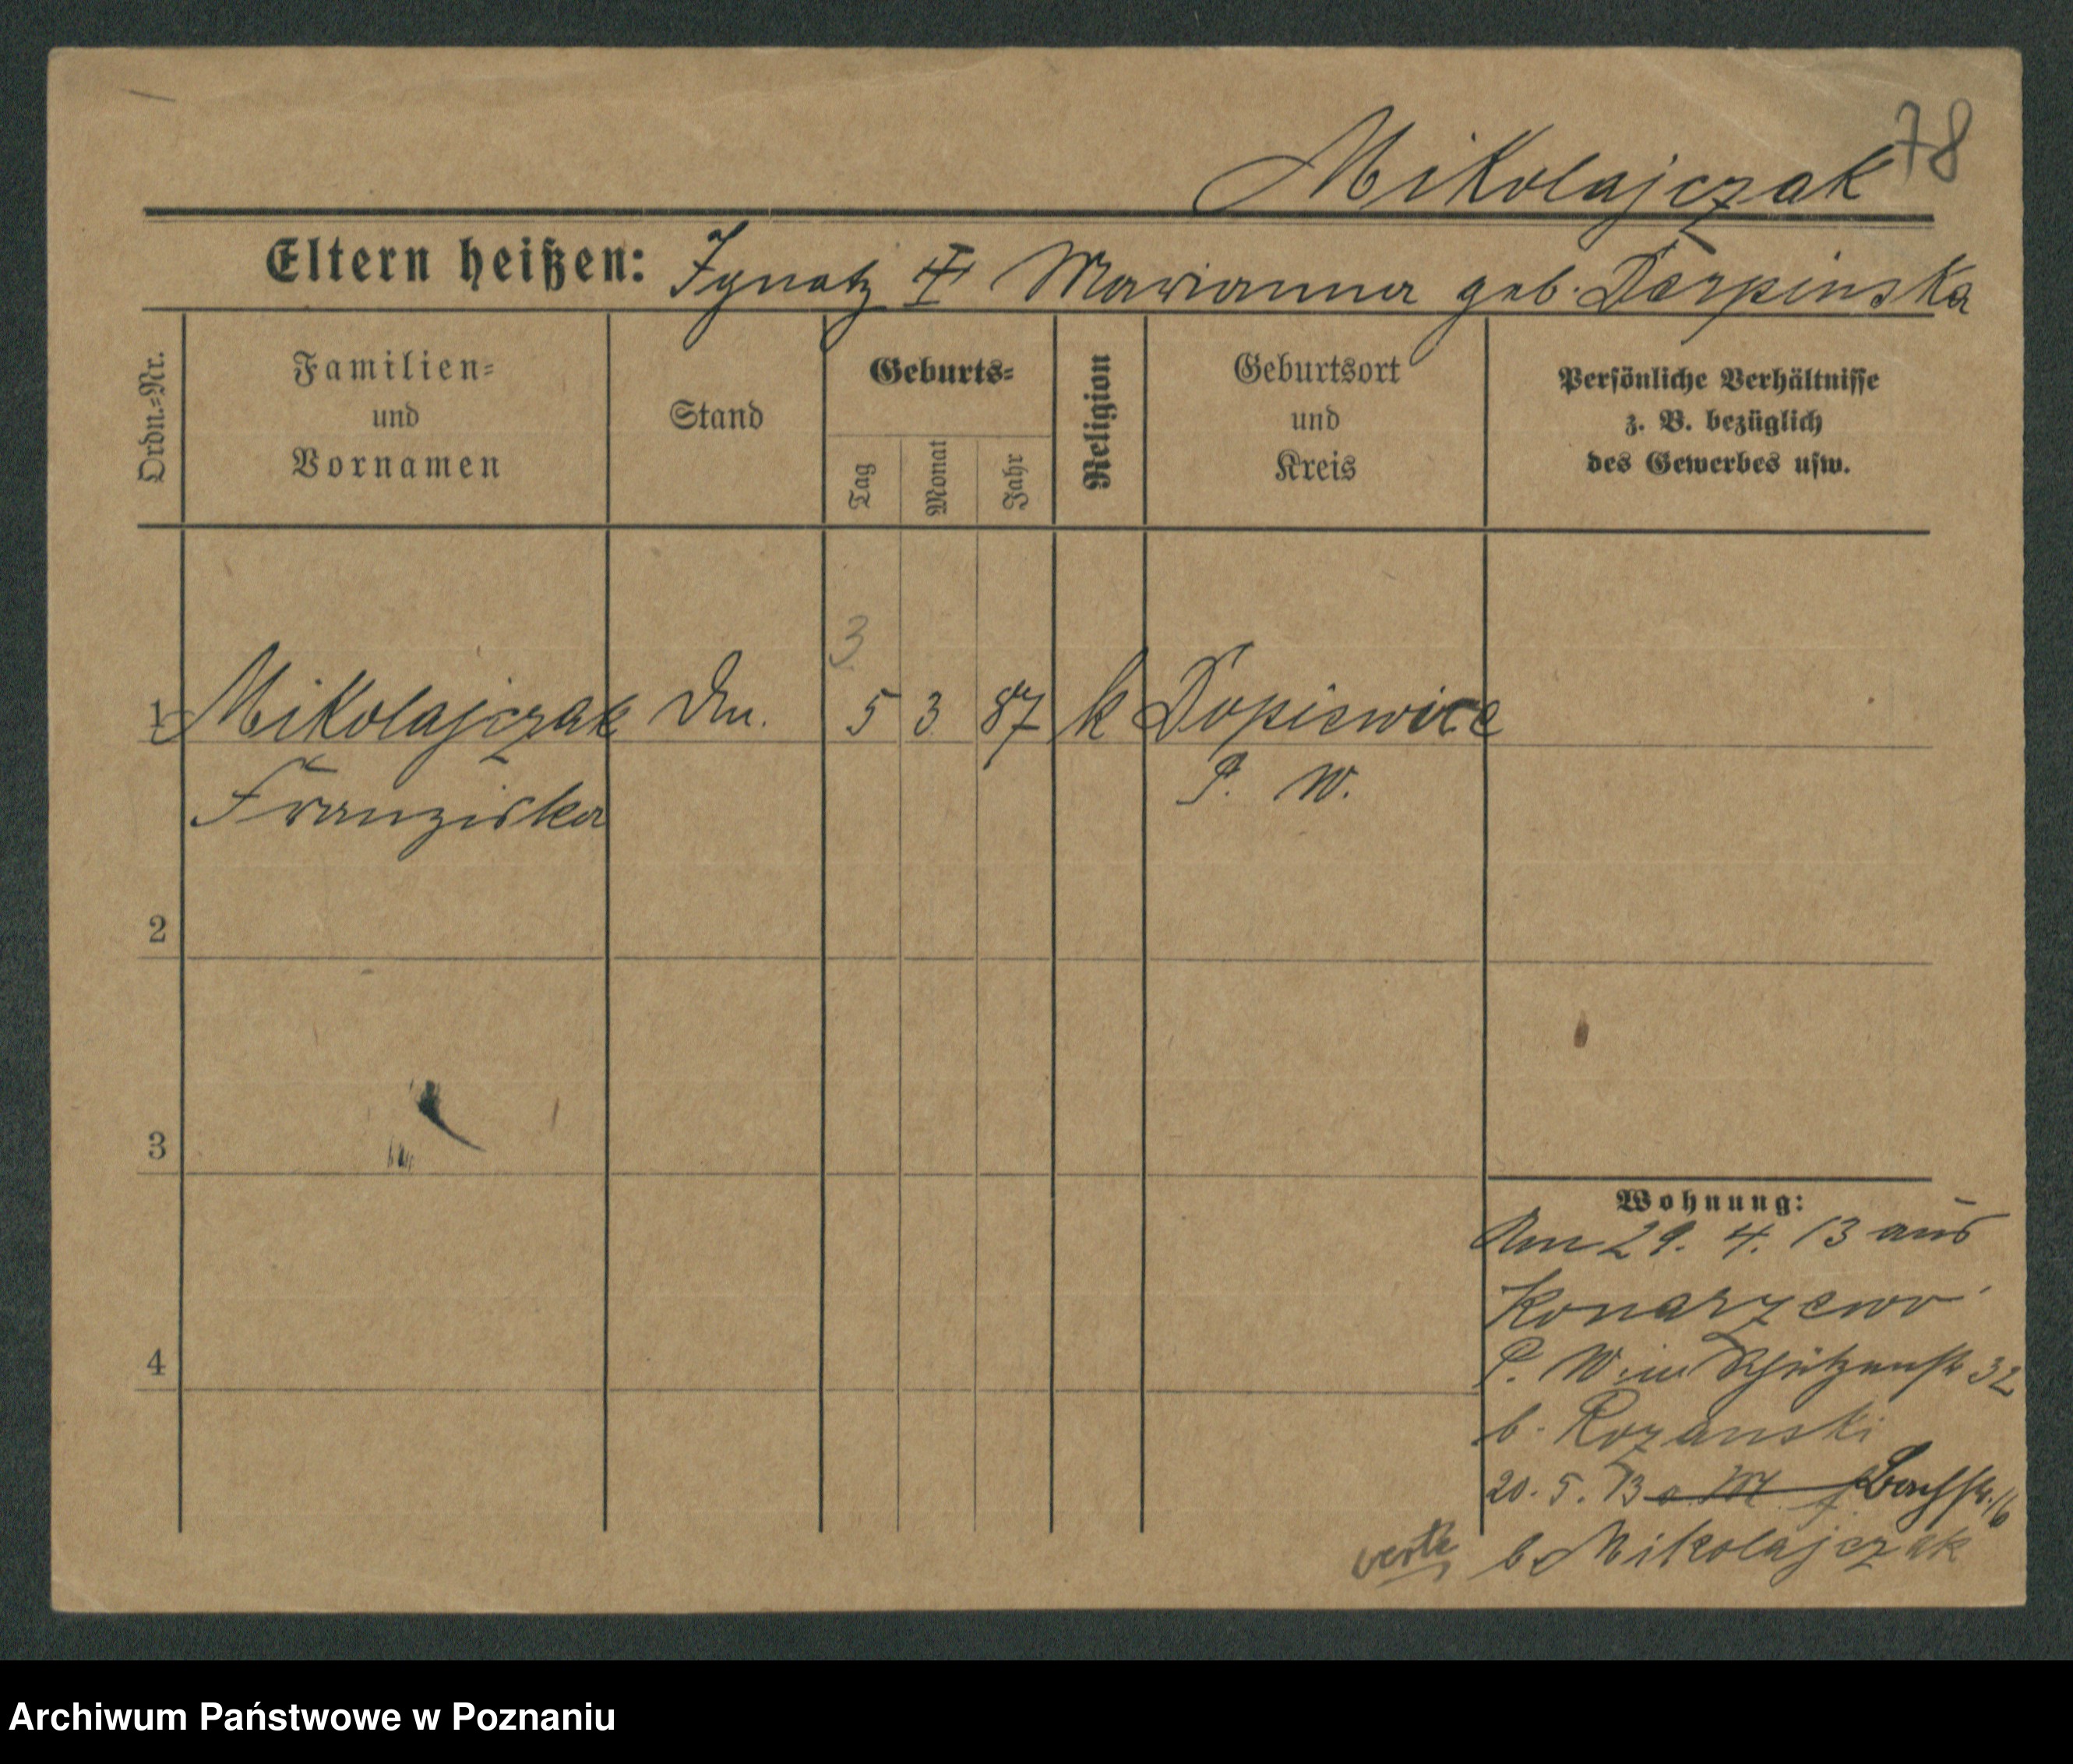 78
Mikolajczak
Eltern heißen: Ignatz † Marianna geb. Darpinska
Ordn.=Nr.
Familien=
und
Vornamen
Stand
Geburts=
Tag
Monat
Jahr
Religion
Geburtsort
und
Kreis
Persönliche Verhältnisse
z. B. bezüglich
des Gewerbes usw.
3
1 Mikolajczak Dm. 5 3 87 k Dopiewice
Franziska P. W.
2
3
4
Wohnung:
Am 29. 4. 13 aus
Konarzewo
P. W. in Schützenstr 32
b. Rozanski
20. 5. 13 Bachstr. 16
b. Mikolajczak
verte
Archiwum Państwowe w Poznaniu